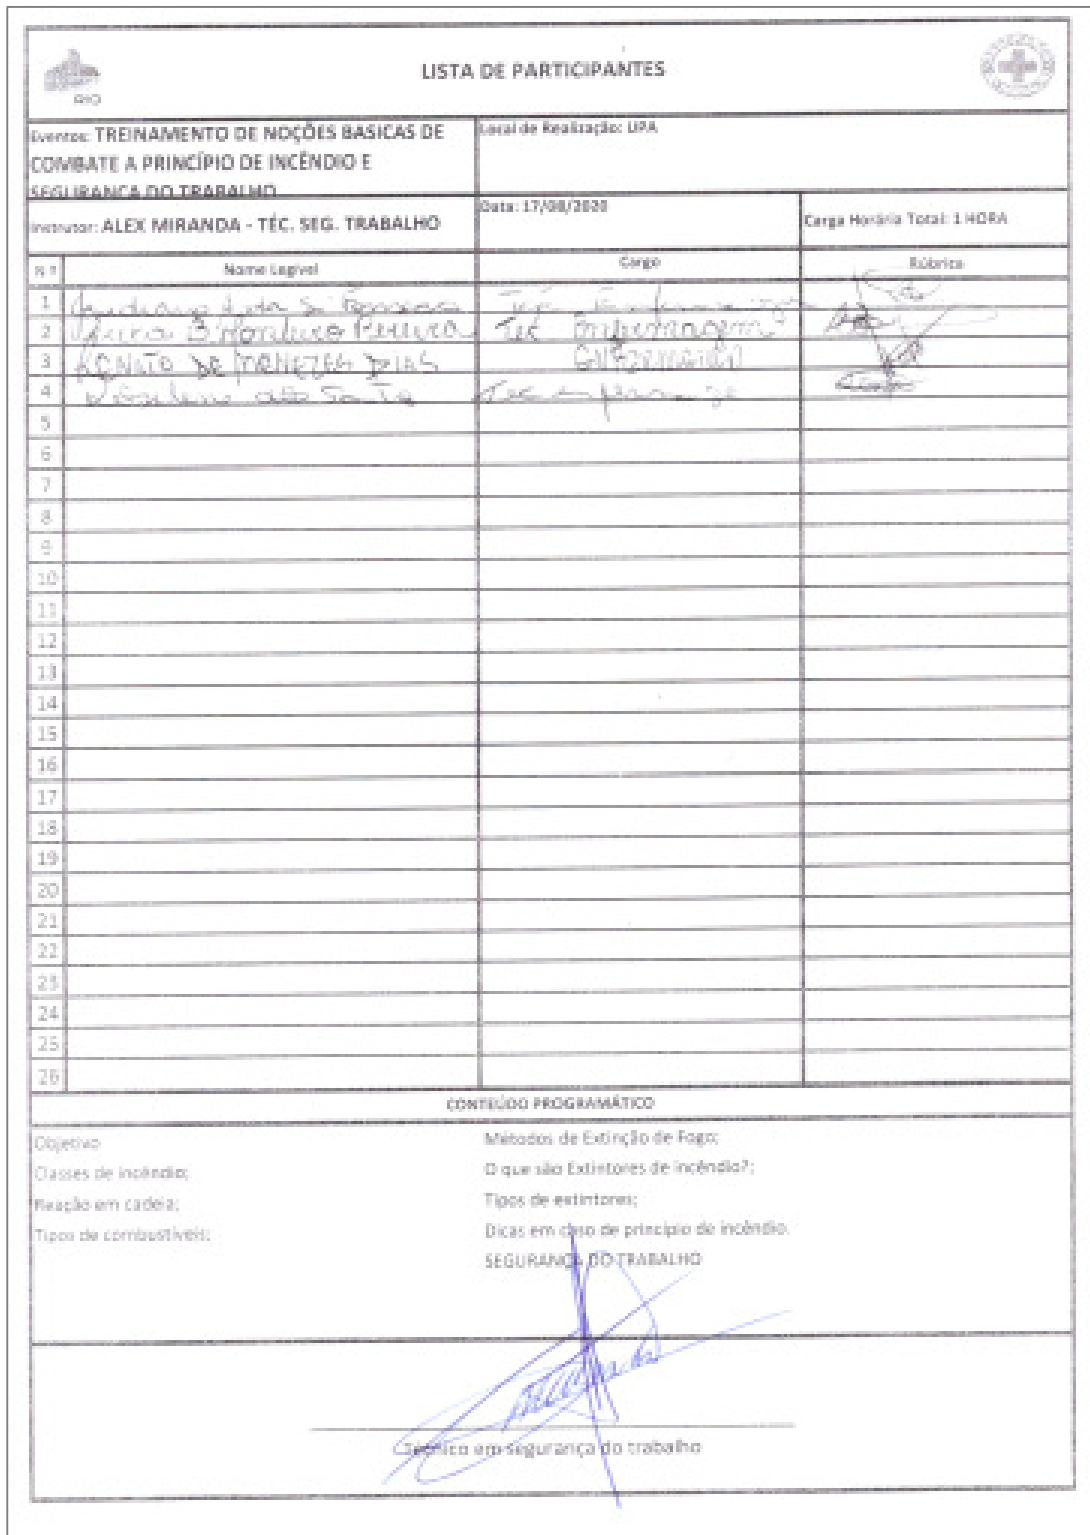 RIO
LISTA DE PARTICIPANTES
Eventos: TREINAMENTO DE NOÇÕES BASICAS DE
COMBATE A PRINCÍPIO DE INCÊNDIO E
SEGURANÇA DO TRABALHO
Local de Realização: UPA
Instrutor: ALEX MIRANDA - TÉC. SEG. TRABALHO
Data: 17/08/2020
Carga Horária Total: 1 HORA
N º Nome Legível Cargo Rúbrica
1
2 Monteiro Pereira Tec Enfermagem
3 RENATO DE MENEZES DIAS
4
5
6
7
8
9
10
11
12
13
14
15
16
17
18
19
20
21
22
23
24
25
26
CONTEÚDO PROGRAMÁTICO
Objetivo
Classes de incêndio;
Reação em cadeia;
Tipos de combustíveis;
Métodos de Extinção de Fogo;
O que são Extintores de incêndio?;
Tipos de extintores;
Dicas em caso de princípio de incêndio.
SEGURANÇA DO TRABALHO
Técnico em segurança do trabalho